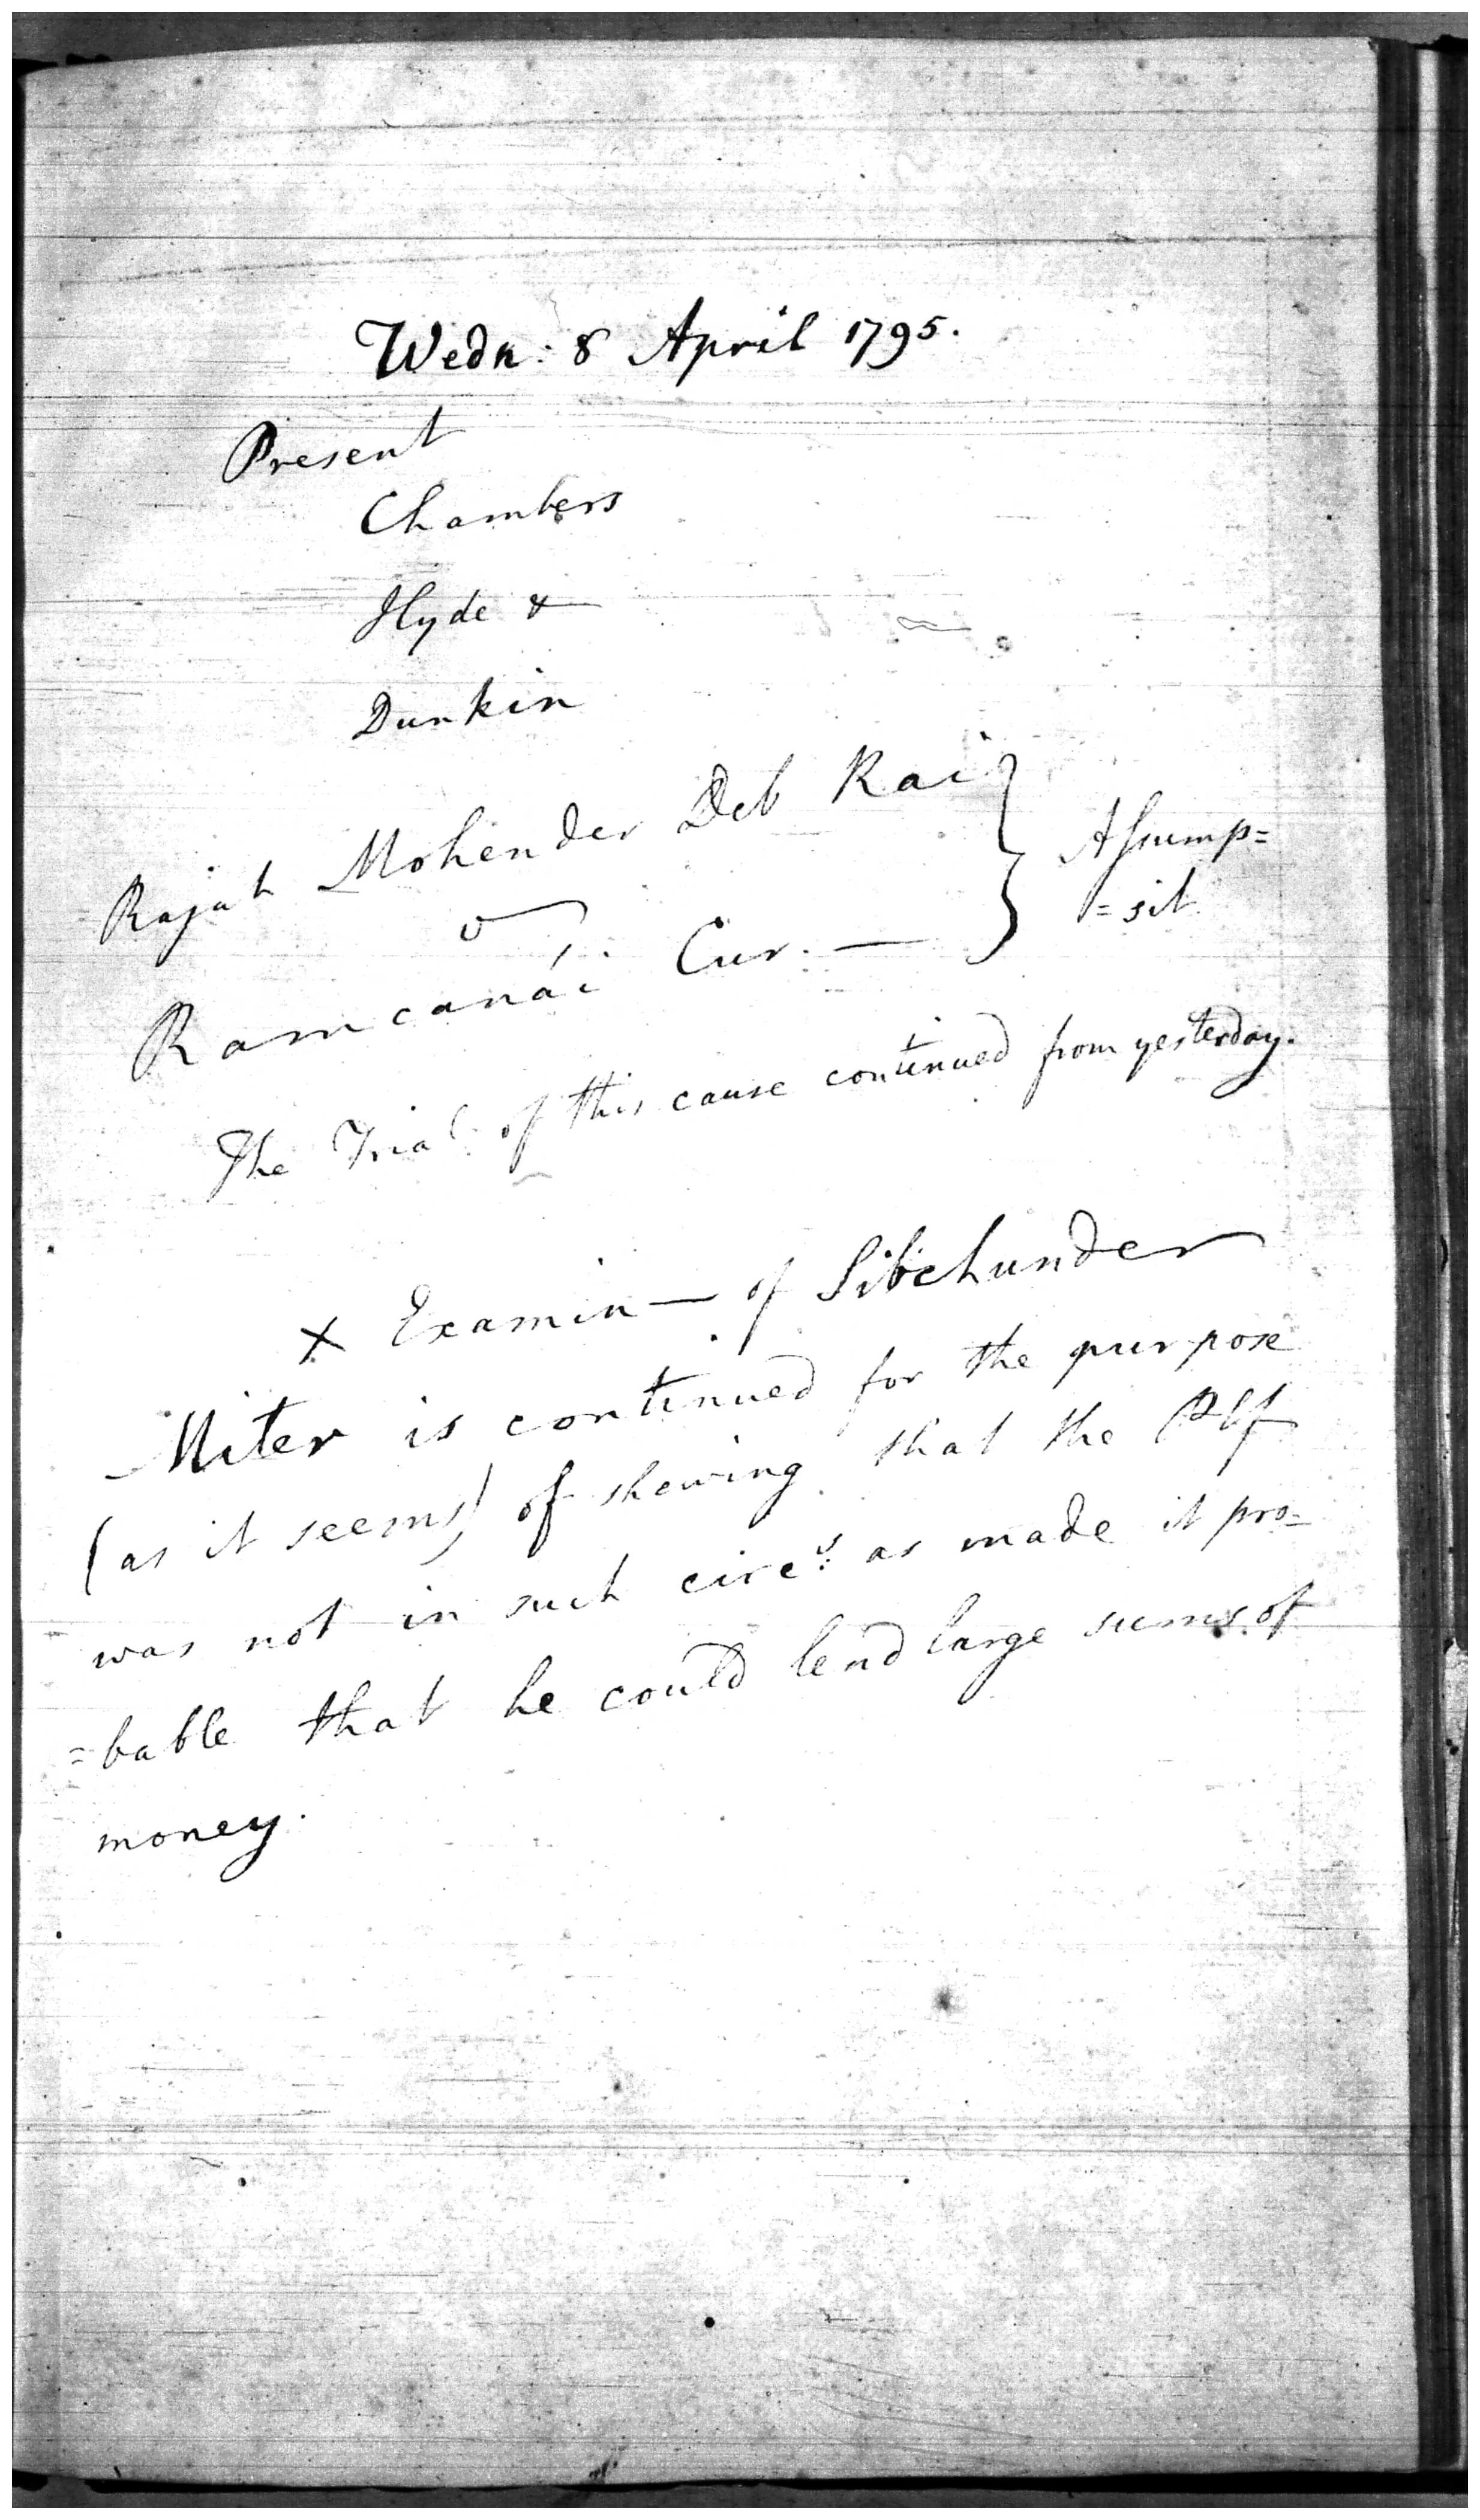 Wedn: 8 April 1795.
Present
Chambers
Hyde &
Dunkin
Rajah Mohender Deb Rai
v
Ramcanái Cur. —
} Assump=
=sit
The Trial of this cause continued from yesterday.
X Examin— of Sibchunder
Miter is continued for the purpose
(as it seems) of shewing that the Plf
was not in such circs. as made it pro=
=bable that he could lend large sums of
money.